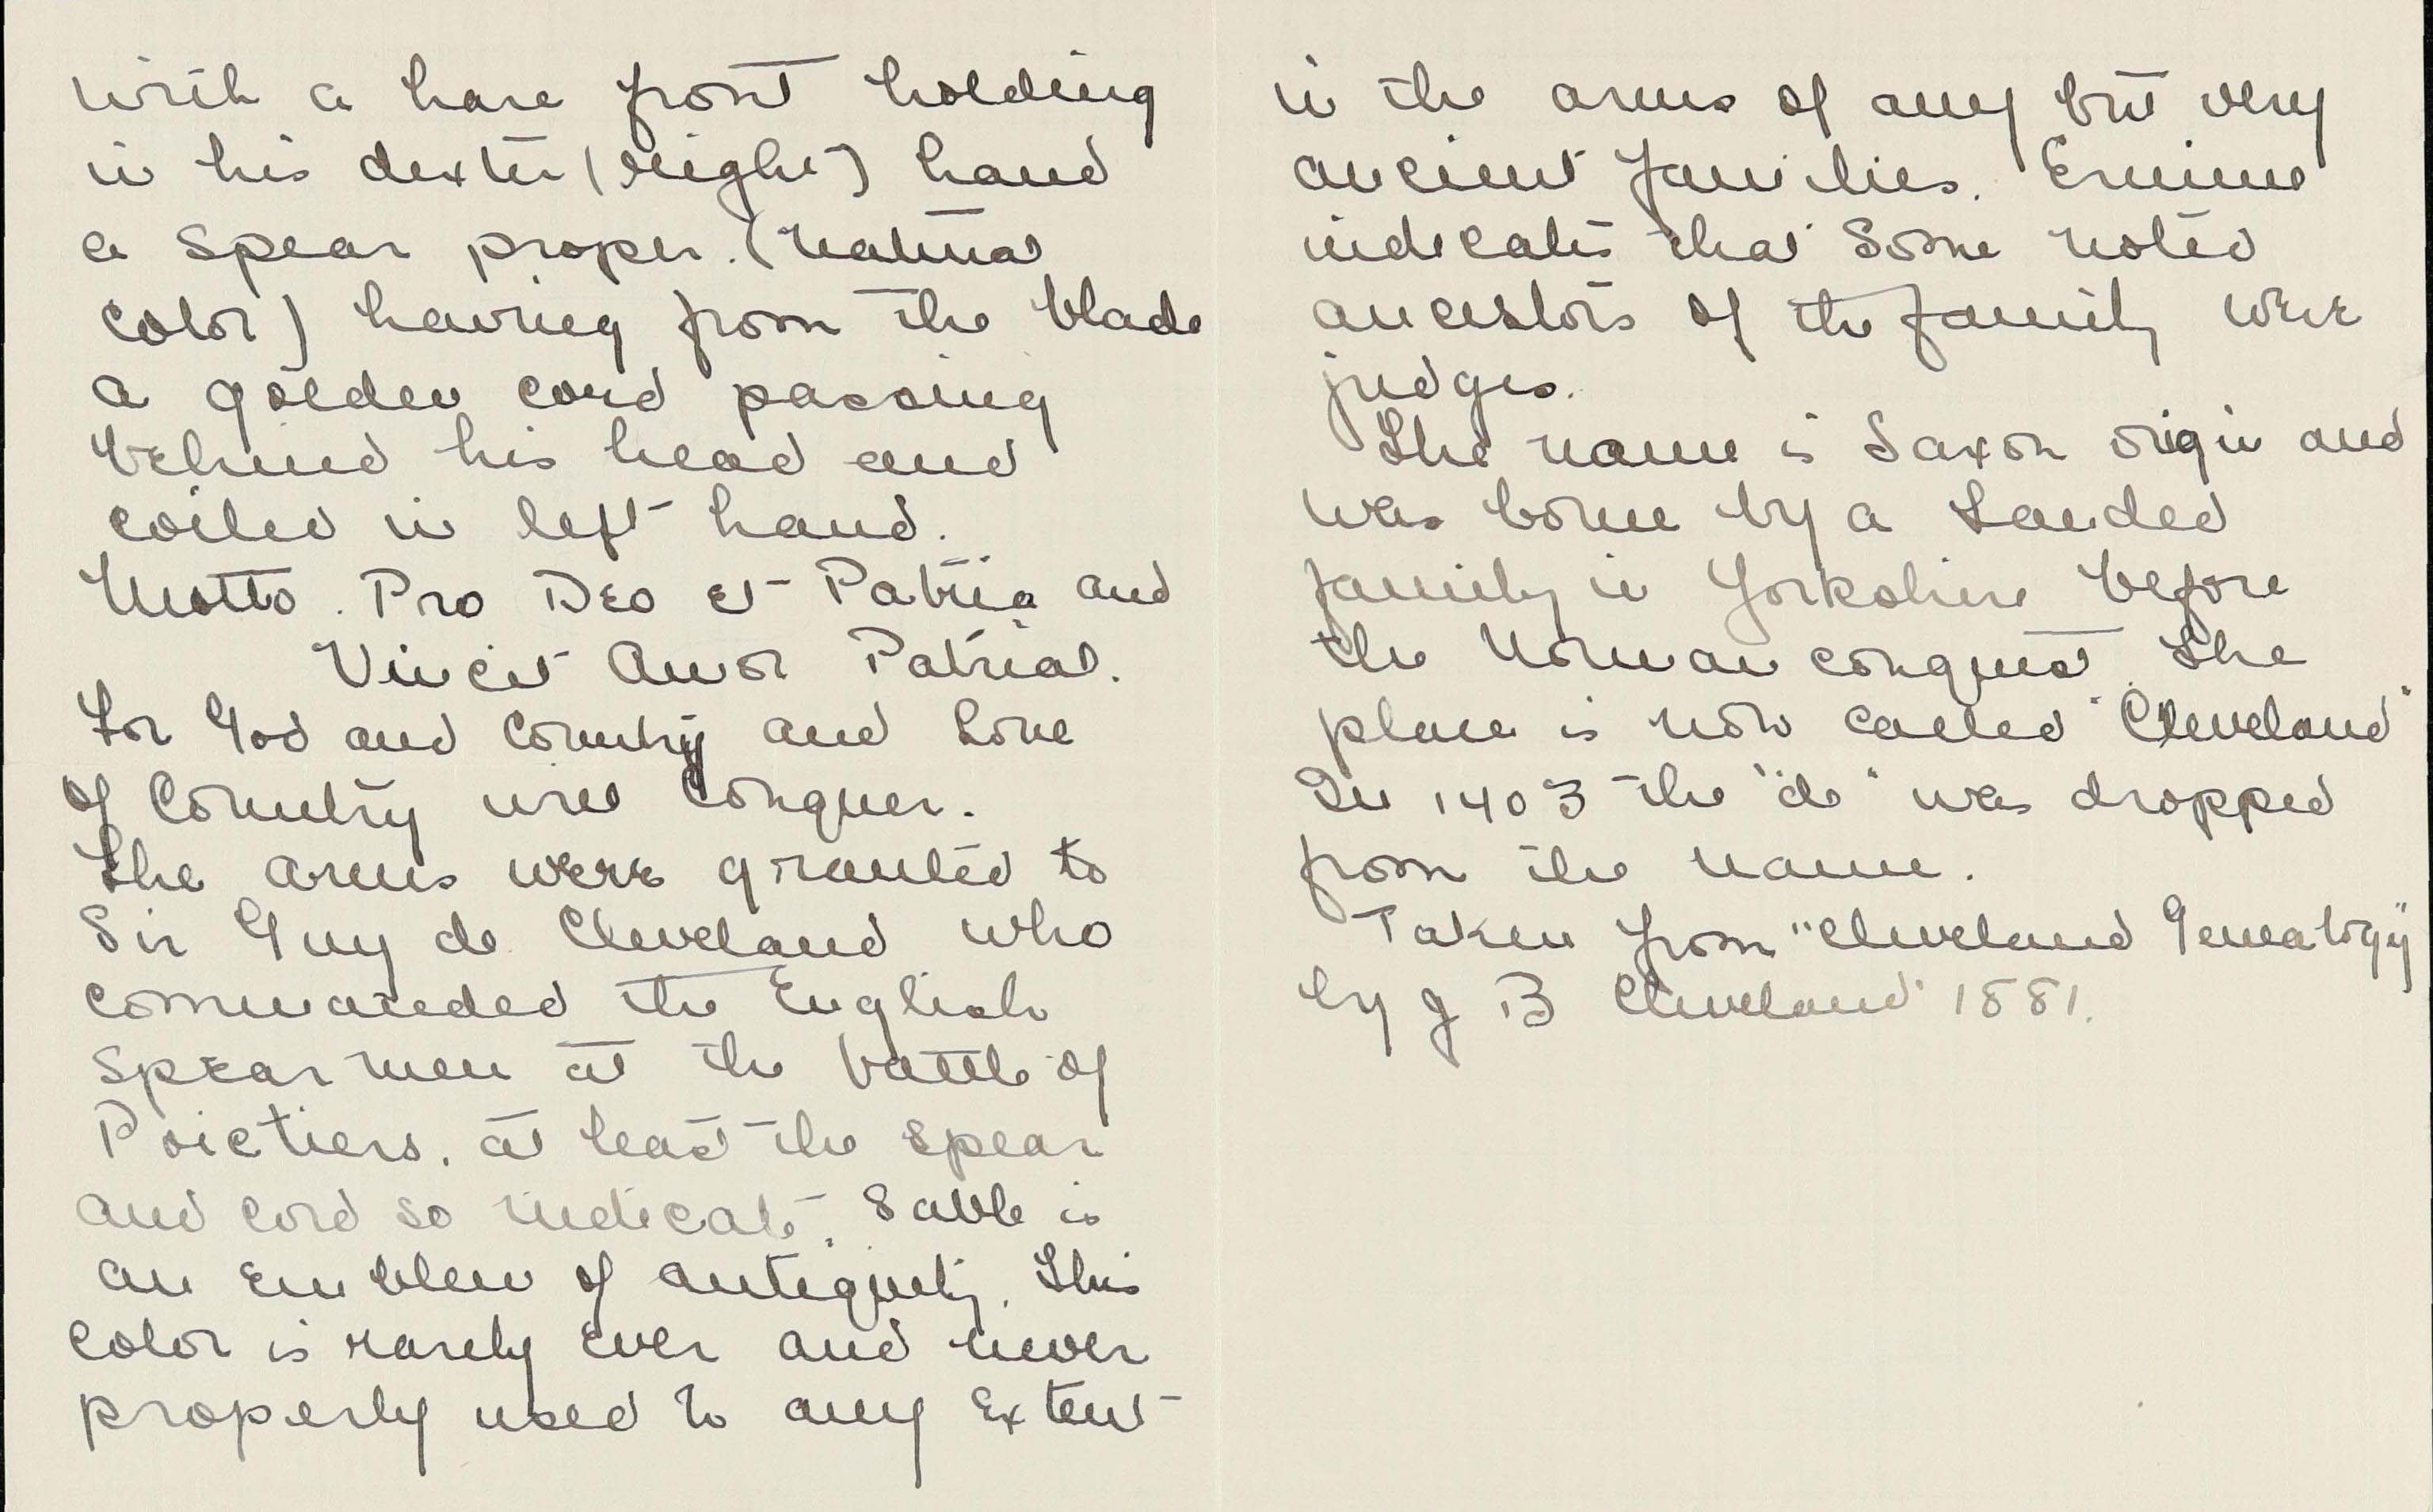 with a hare front holding
in his dexter (right) hand
a spear proper. (natural
color) having from the blade
a golden cord passing
behind his head and
coiled in left hand.
Motto. Pro Deo et Patria and
Vincit Amor Patriae.
For God and Country and Love
of Country will Conquer.
The arms were granted to
Sir Guy de Cleveland who
commanded the English
Spearmen at the battle of
Poictiers. at least the spear
and cord so indicate. Sable is
an Emblem of antiquity. This
color is rarely ever and never
properly used to any Extent
in the arms of any but very
ancient families. Ermine
indicates that some noted
ancestors of the family were
judges.
The name is Saxon origin and
was borne by a Landed
family in Yorkshire before
the Norman conquest. The
place is now called "Cleveland"
In 1403 the "de" was dropped
from the name.
Taken from "Cleveland Genealogy"
by J B Cleveland 1881.